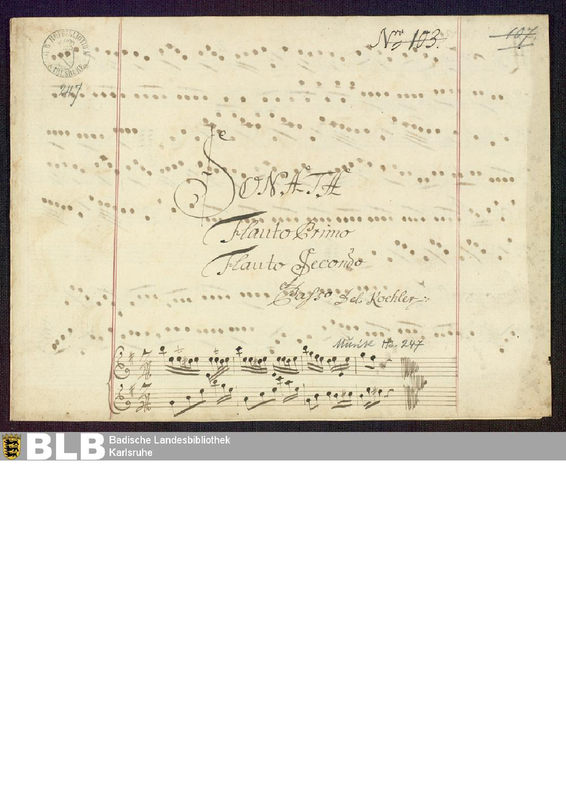 Nro 103.
107
247
SONATA
Flauto Primo
Flauto Secondo
Basso Del Koehler
Musik Hs. 247
BLB
Badische Landesbibliothek
Karlsruhe